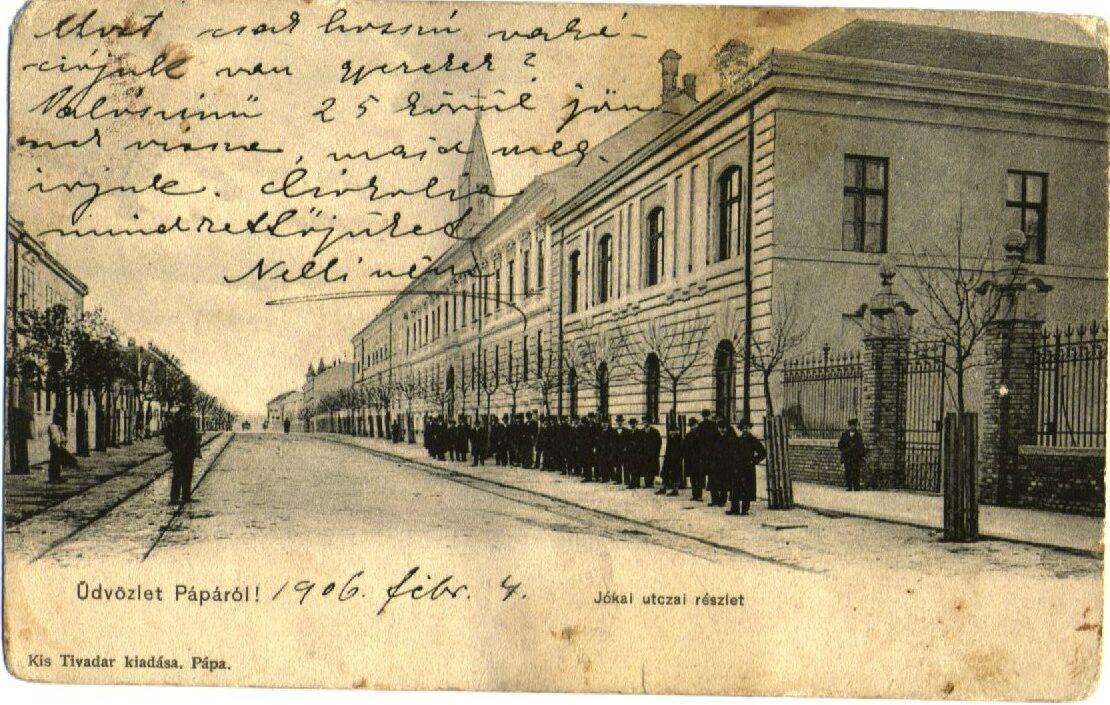 Most csak hosszú vaká-
ciójuk van gyerekek?
Valószínű 25 körül jön
nek vissza, majd meg
irjuk. Csókolja
mindkettőjüket
Nelli néni
Üdvözlet Pápáról! 1906. febr. 4.
Jókai utczai részlet
Kis Tivadar kiadása. Pápa.